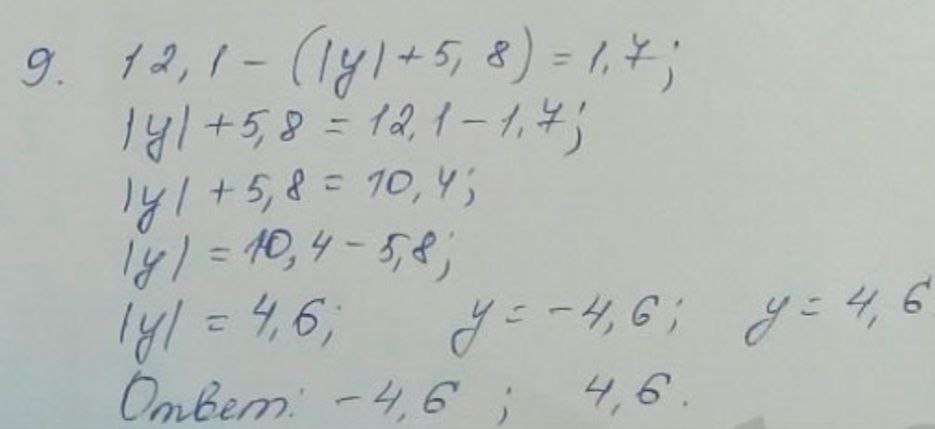 9. 12,1 - (|y| + 5,8) = 1,7;
|y| + 5,8 = 12,1 - 1,7;
|y| + 5,8 = 10,4;
|y| = 10,4 - 5,8;
|y| = 4,6; y = -4,6; y = 4,6
Ответ: -4,6 ; 4,6.